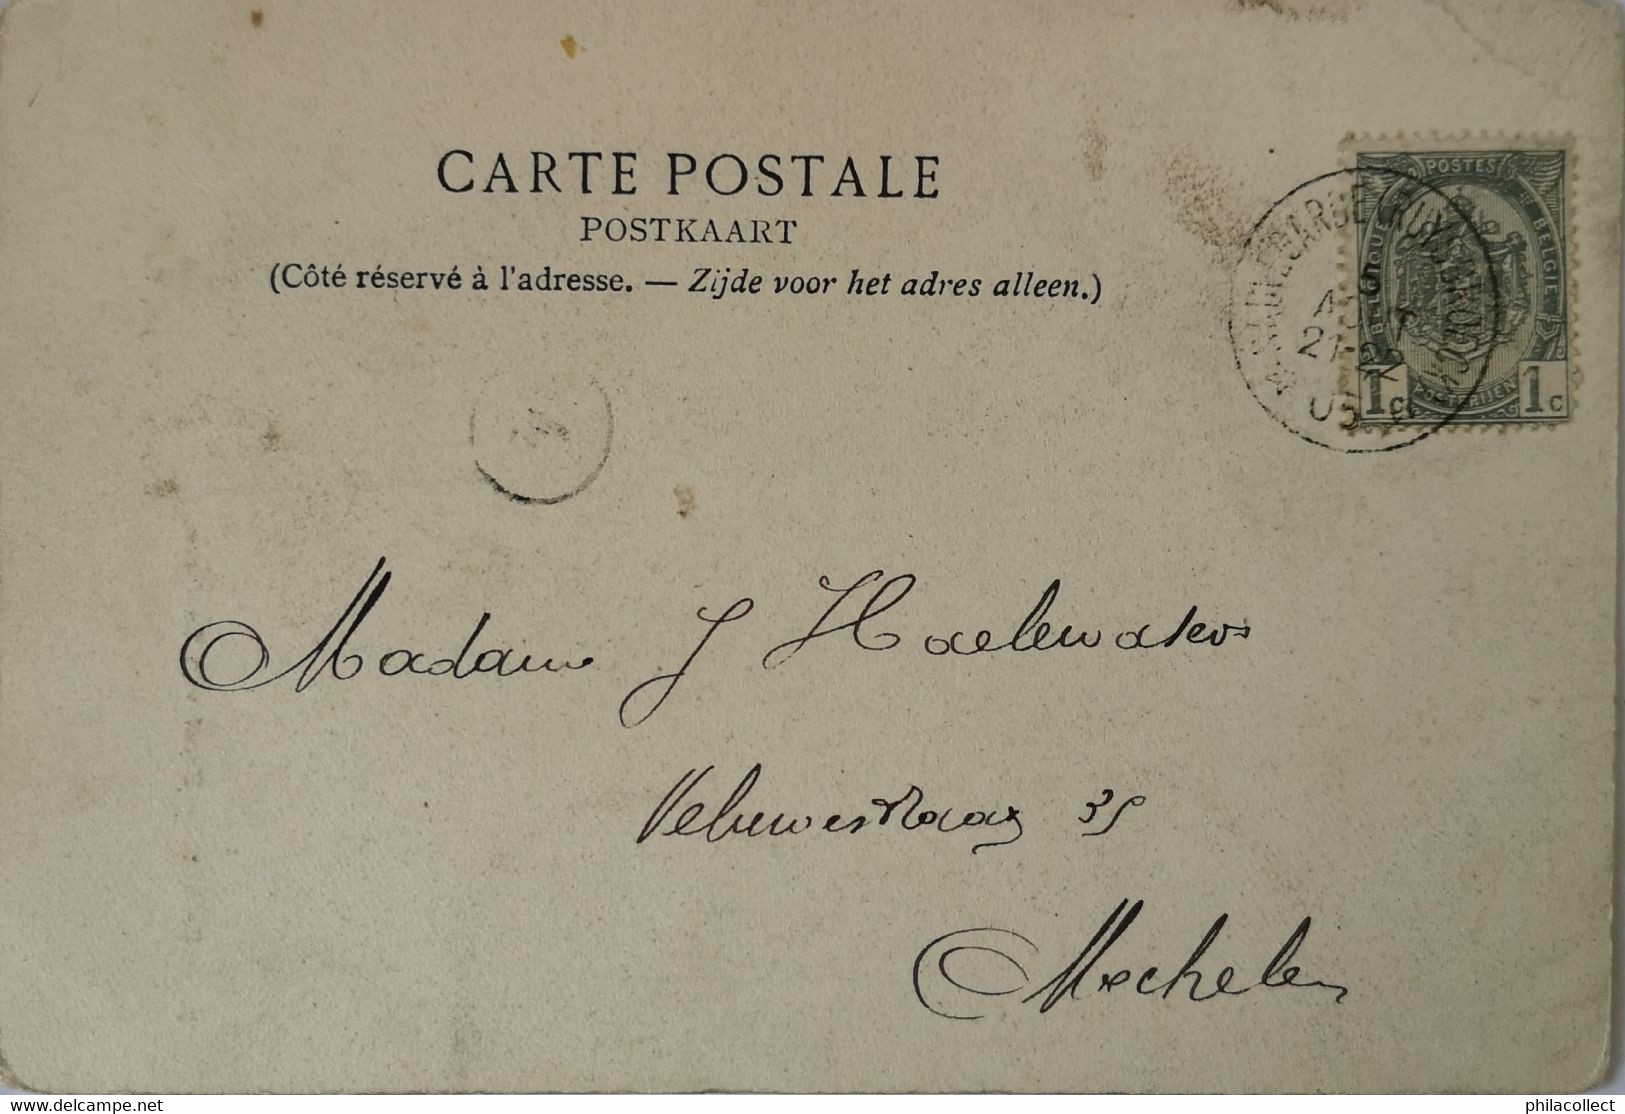 CARTE POSTALE
POSTKAART
(Côté réservé à l'adresse. — Zijde voor het adres alleen.)
POSTES
BELGIQUE
BELGIE
POSTERIJEN
1c 1c
5
21-22
05
Madame J Haelewaters
35
Mechelen
http://www.delcampe.net
philacollect